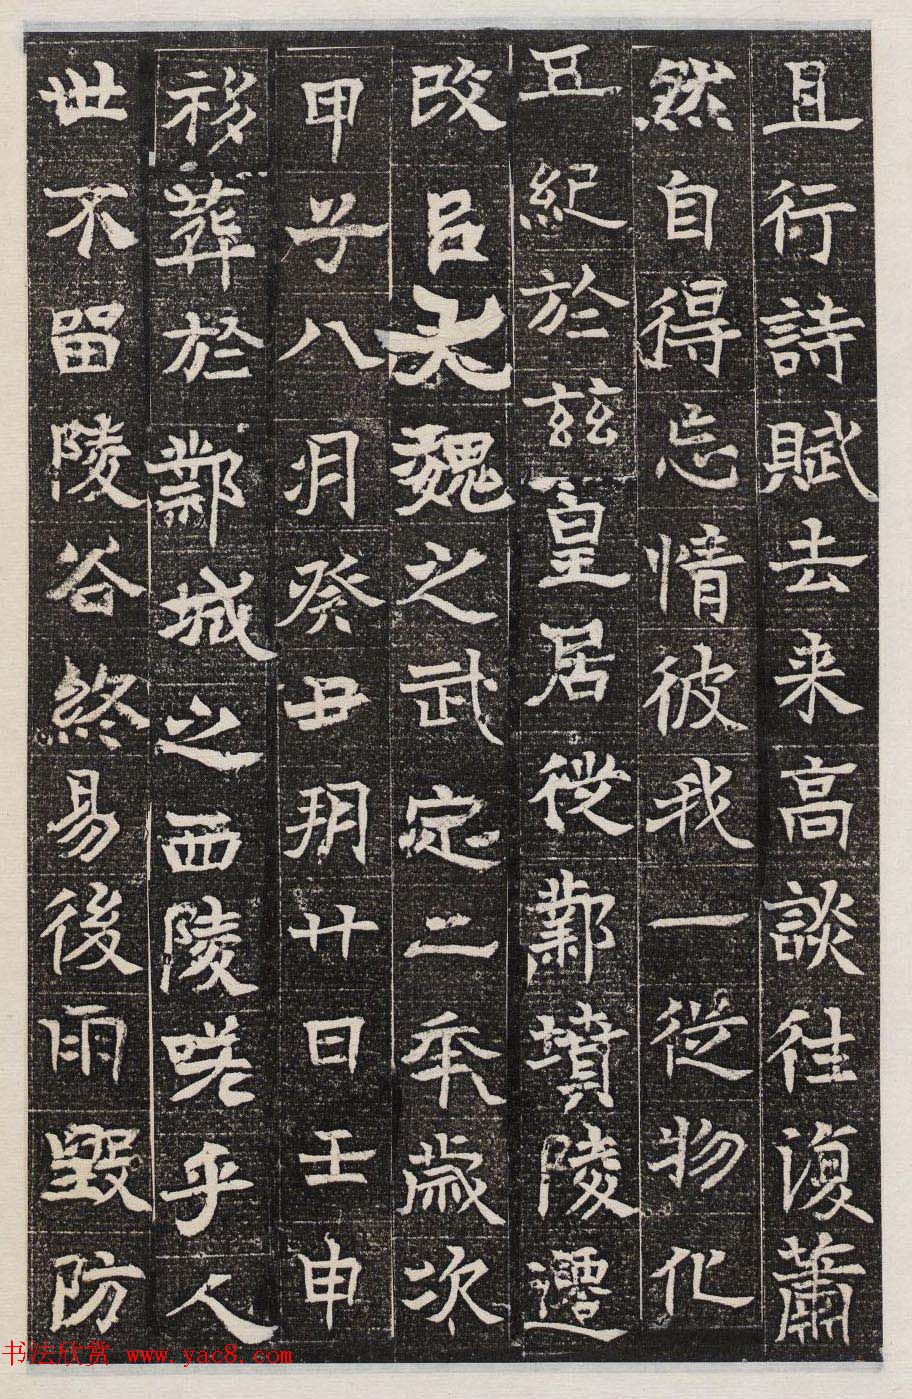 且行詩賦去来高談往復蕭
然自得忘情彼我一従物化
五紀於兹皇居徙鄴墳陵遷
改吕大魏之武定二年歲次
甲子八月癸丑朔廿日壬申
移葬於鄴城之西陵嗟乎人
世不留陵谷終易後雨毀防
书法欣赏 www.yac8.com